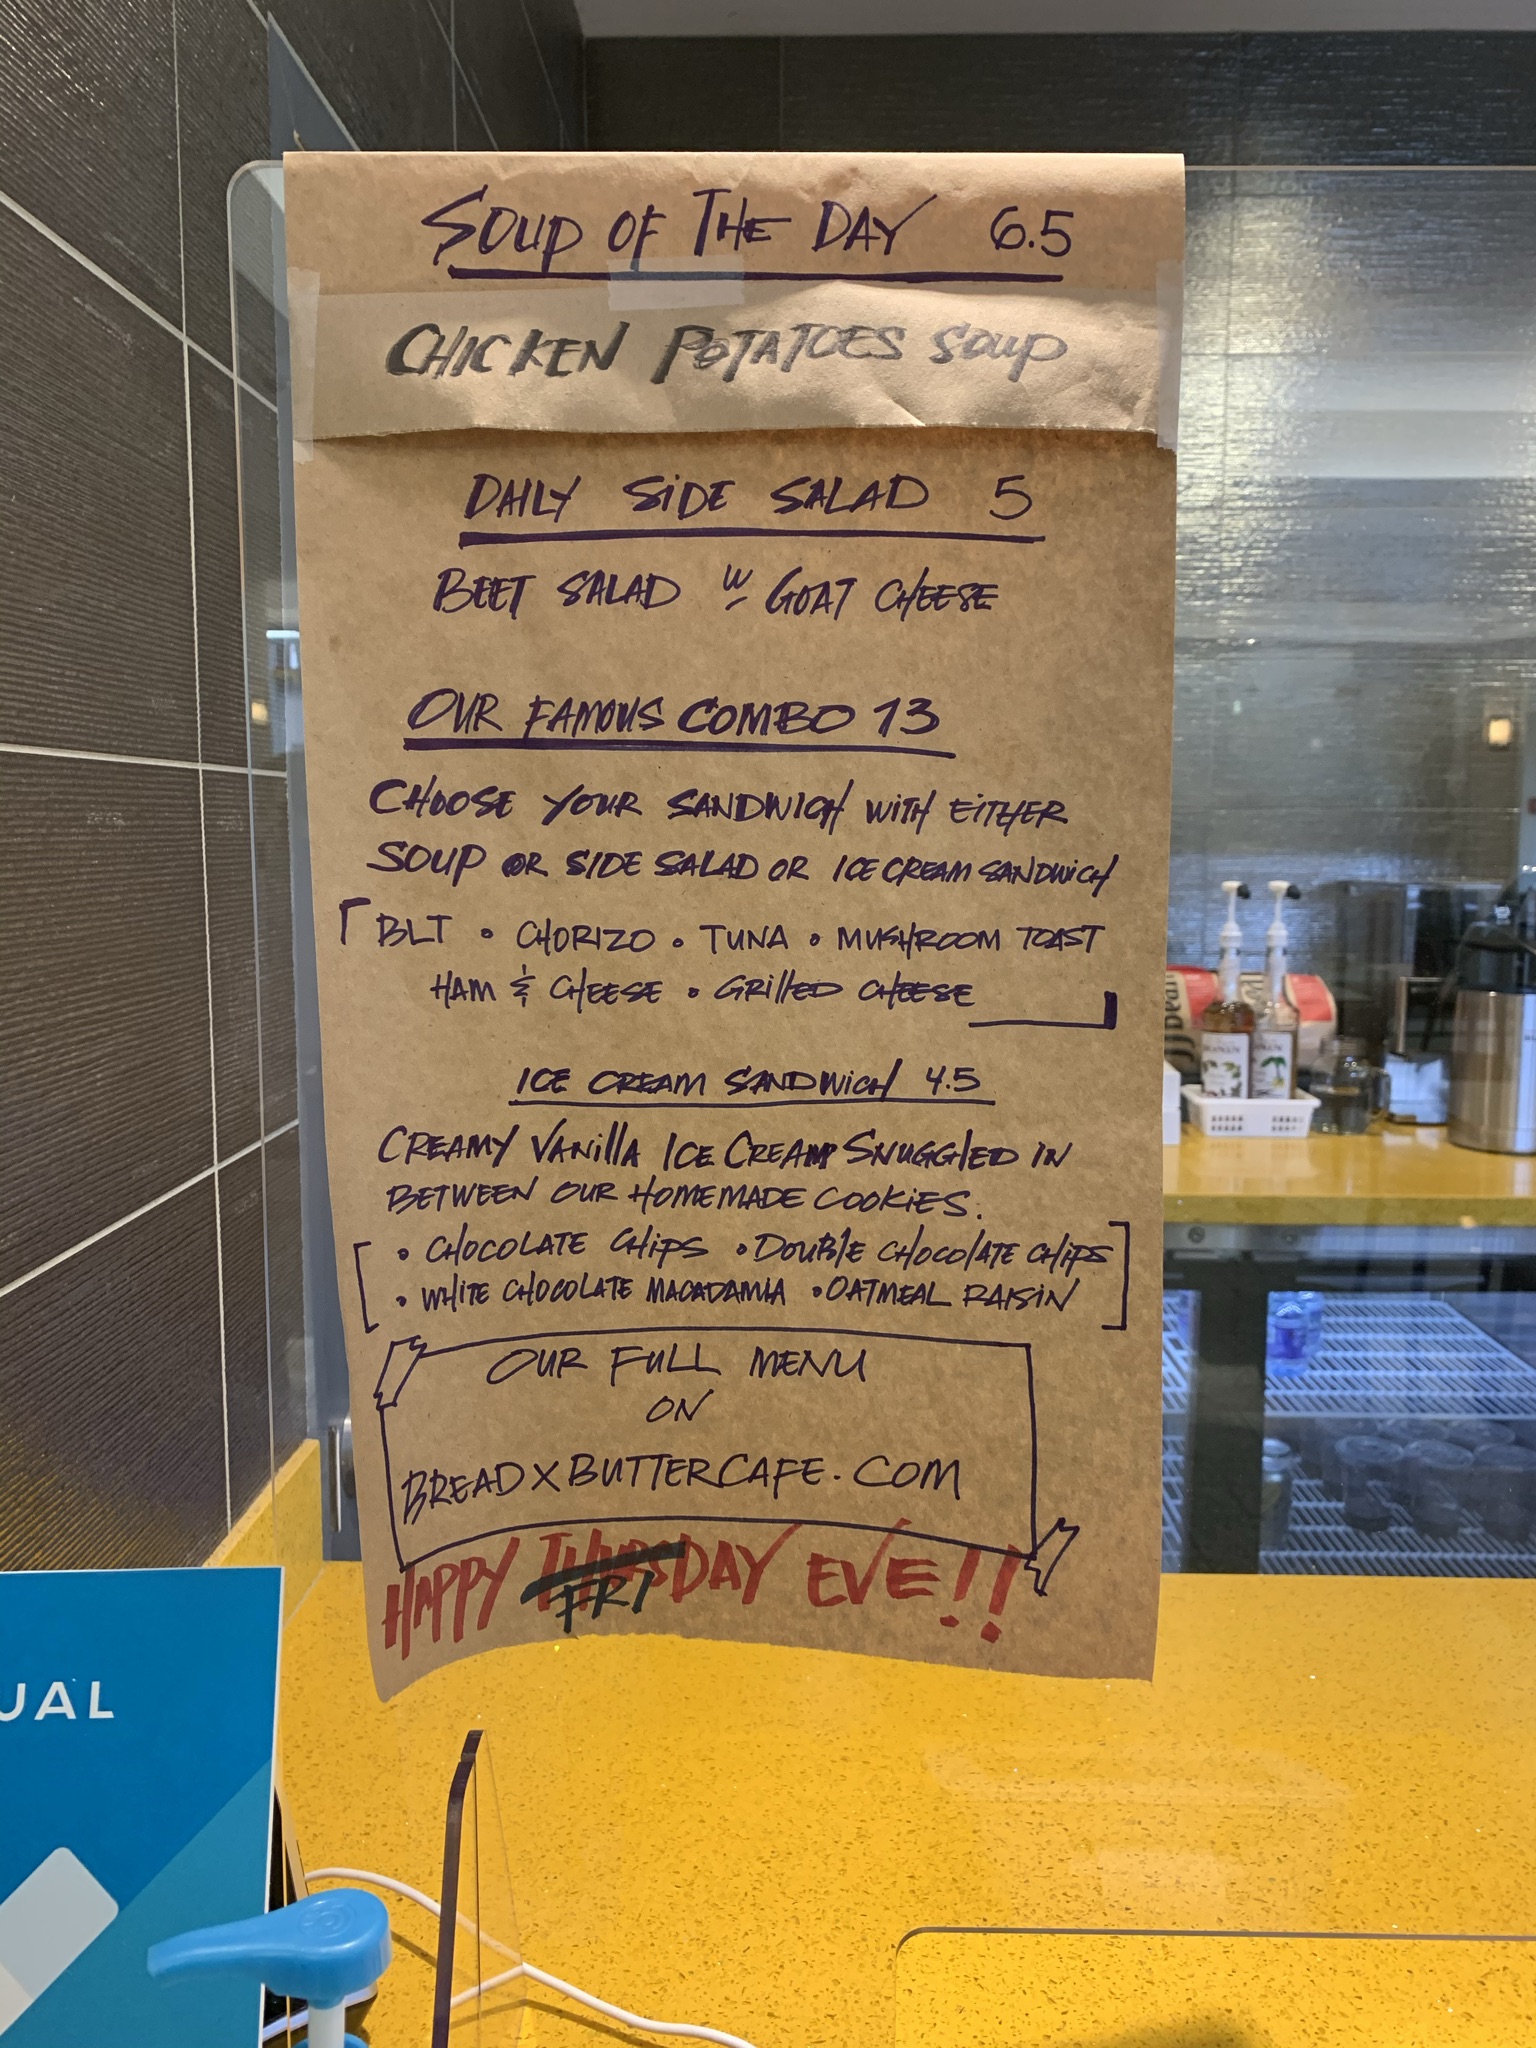 SOUP OF THE DAY 6.5
CHICKEN POTATOES SOUP
DAILY SIDE SALAD 5
BEET SALAD W GOAT CHEESE
OUR FAMOUS COMBO 13
CHOOSE YOUR SANDWICH WITH EITHER
SOUP OR SIDE SALAD OR ICE CREAM SANDWICH
BLT • CHORIZO • TUNA • MUSHROOM TOAST
HAM & CHEESE • GRILLED CHEESE
ICE CREAM SANDWICH 4.5
CREAMY VANILLA ICE CREAM SNUGGLED IN
BETWEEN OUR HOMEMADE COOKIES.
• CHOCOLATE CHIPS • DOUBLE CHOCOLATE CHIPS
• WHITE CHOCOLATE MACADAMIA • OATMEAL RAISIN
OUR FULL MENU
ON
BREADXBUTTERCAFE.COM
HAPPY THURSDAY EVE!!
FRI
UAL